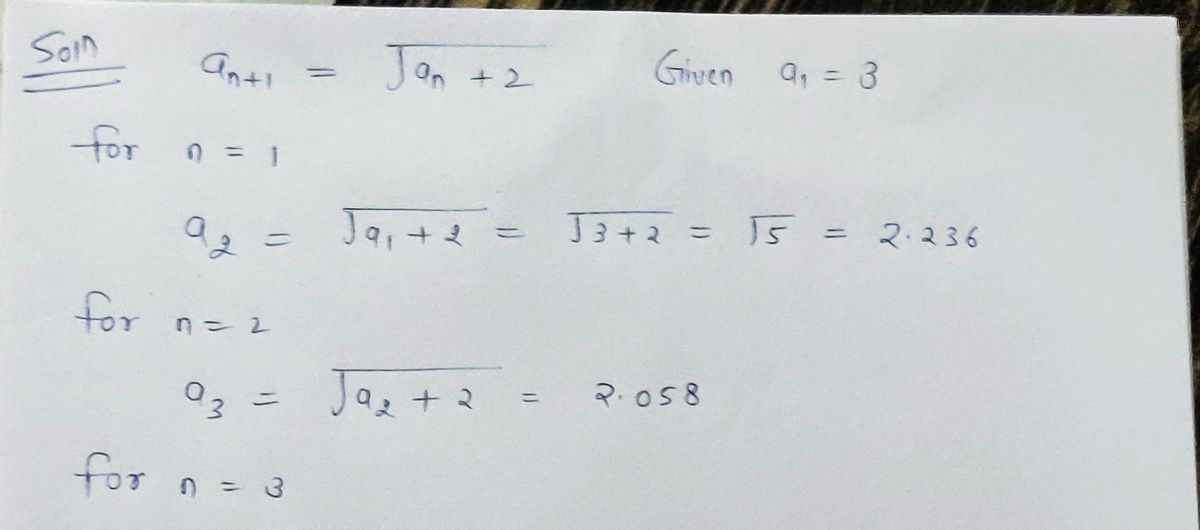 Soln a_{n+1} = √(a_n + 2) Given a_1 = 3
for n = 1
a_2 = √(a_1 + 2) = √(3 + 2) = √5 = 2.236
for n = 2
a_3 = √(a_2 + 2) = 2.058
for n = 3